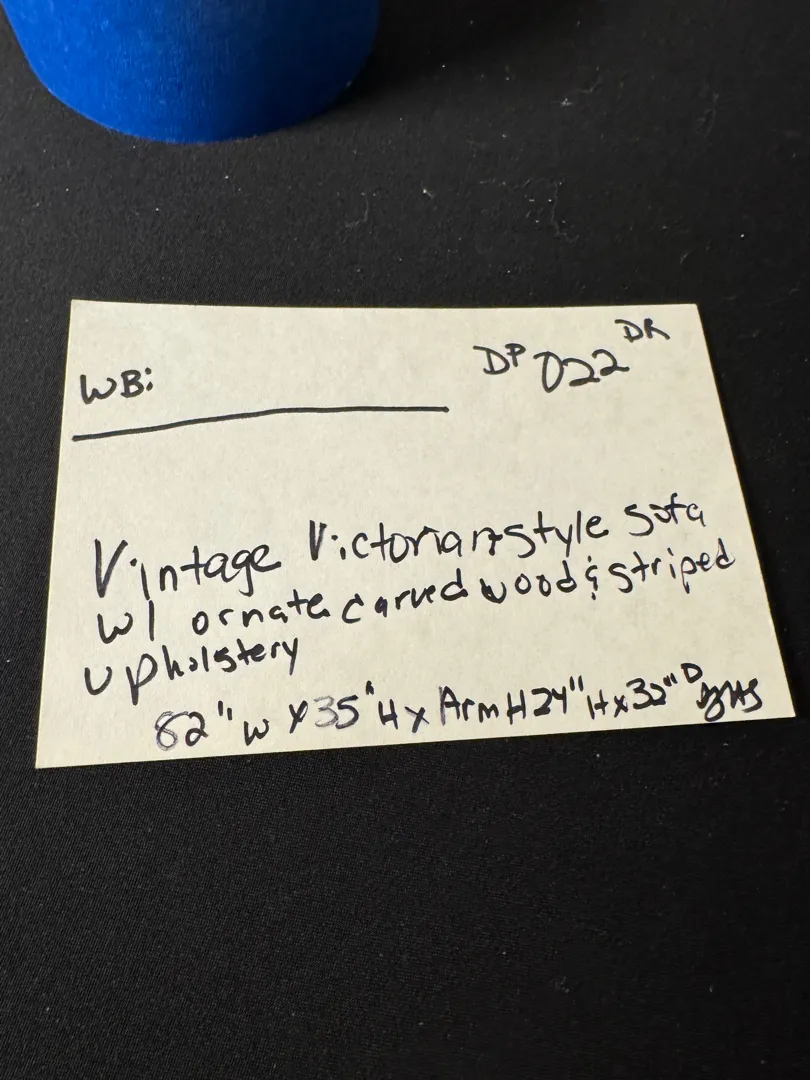 WB:
DP 022 DR
Vintage Victorian-style sofa
w/ ornate carved wood & striped
upholstery
82" W x 35" H x Arm H 24" H x 32" D